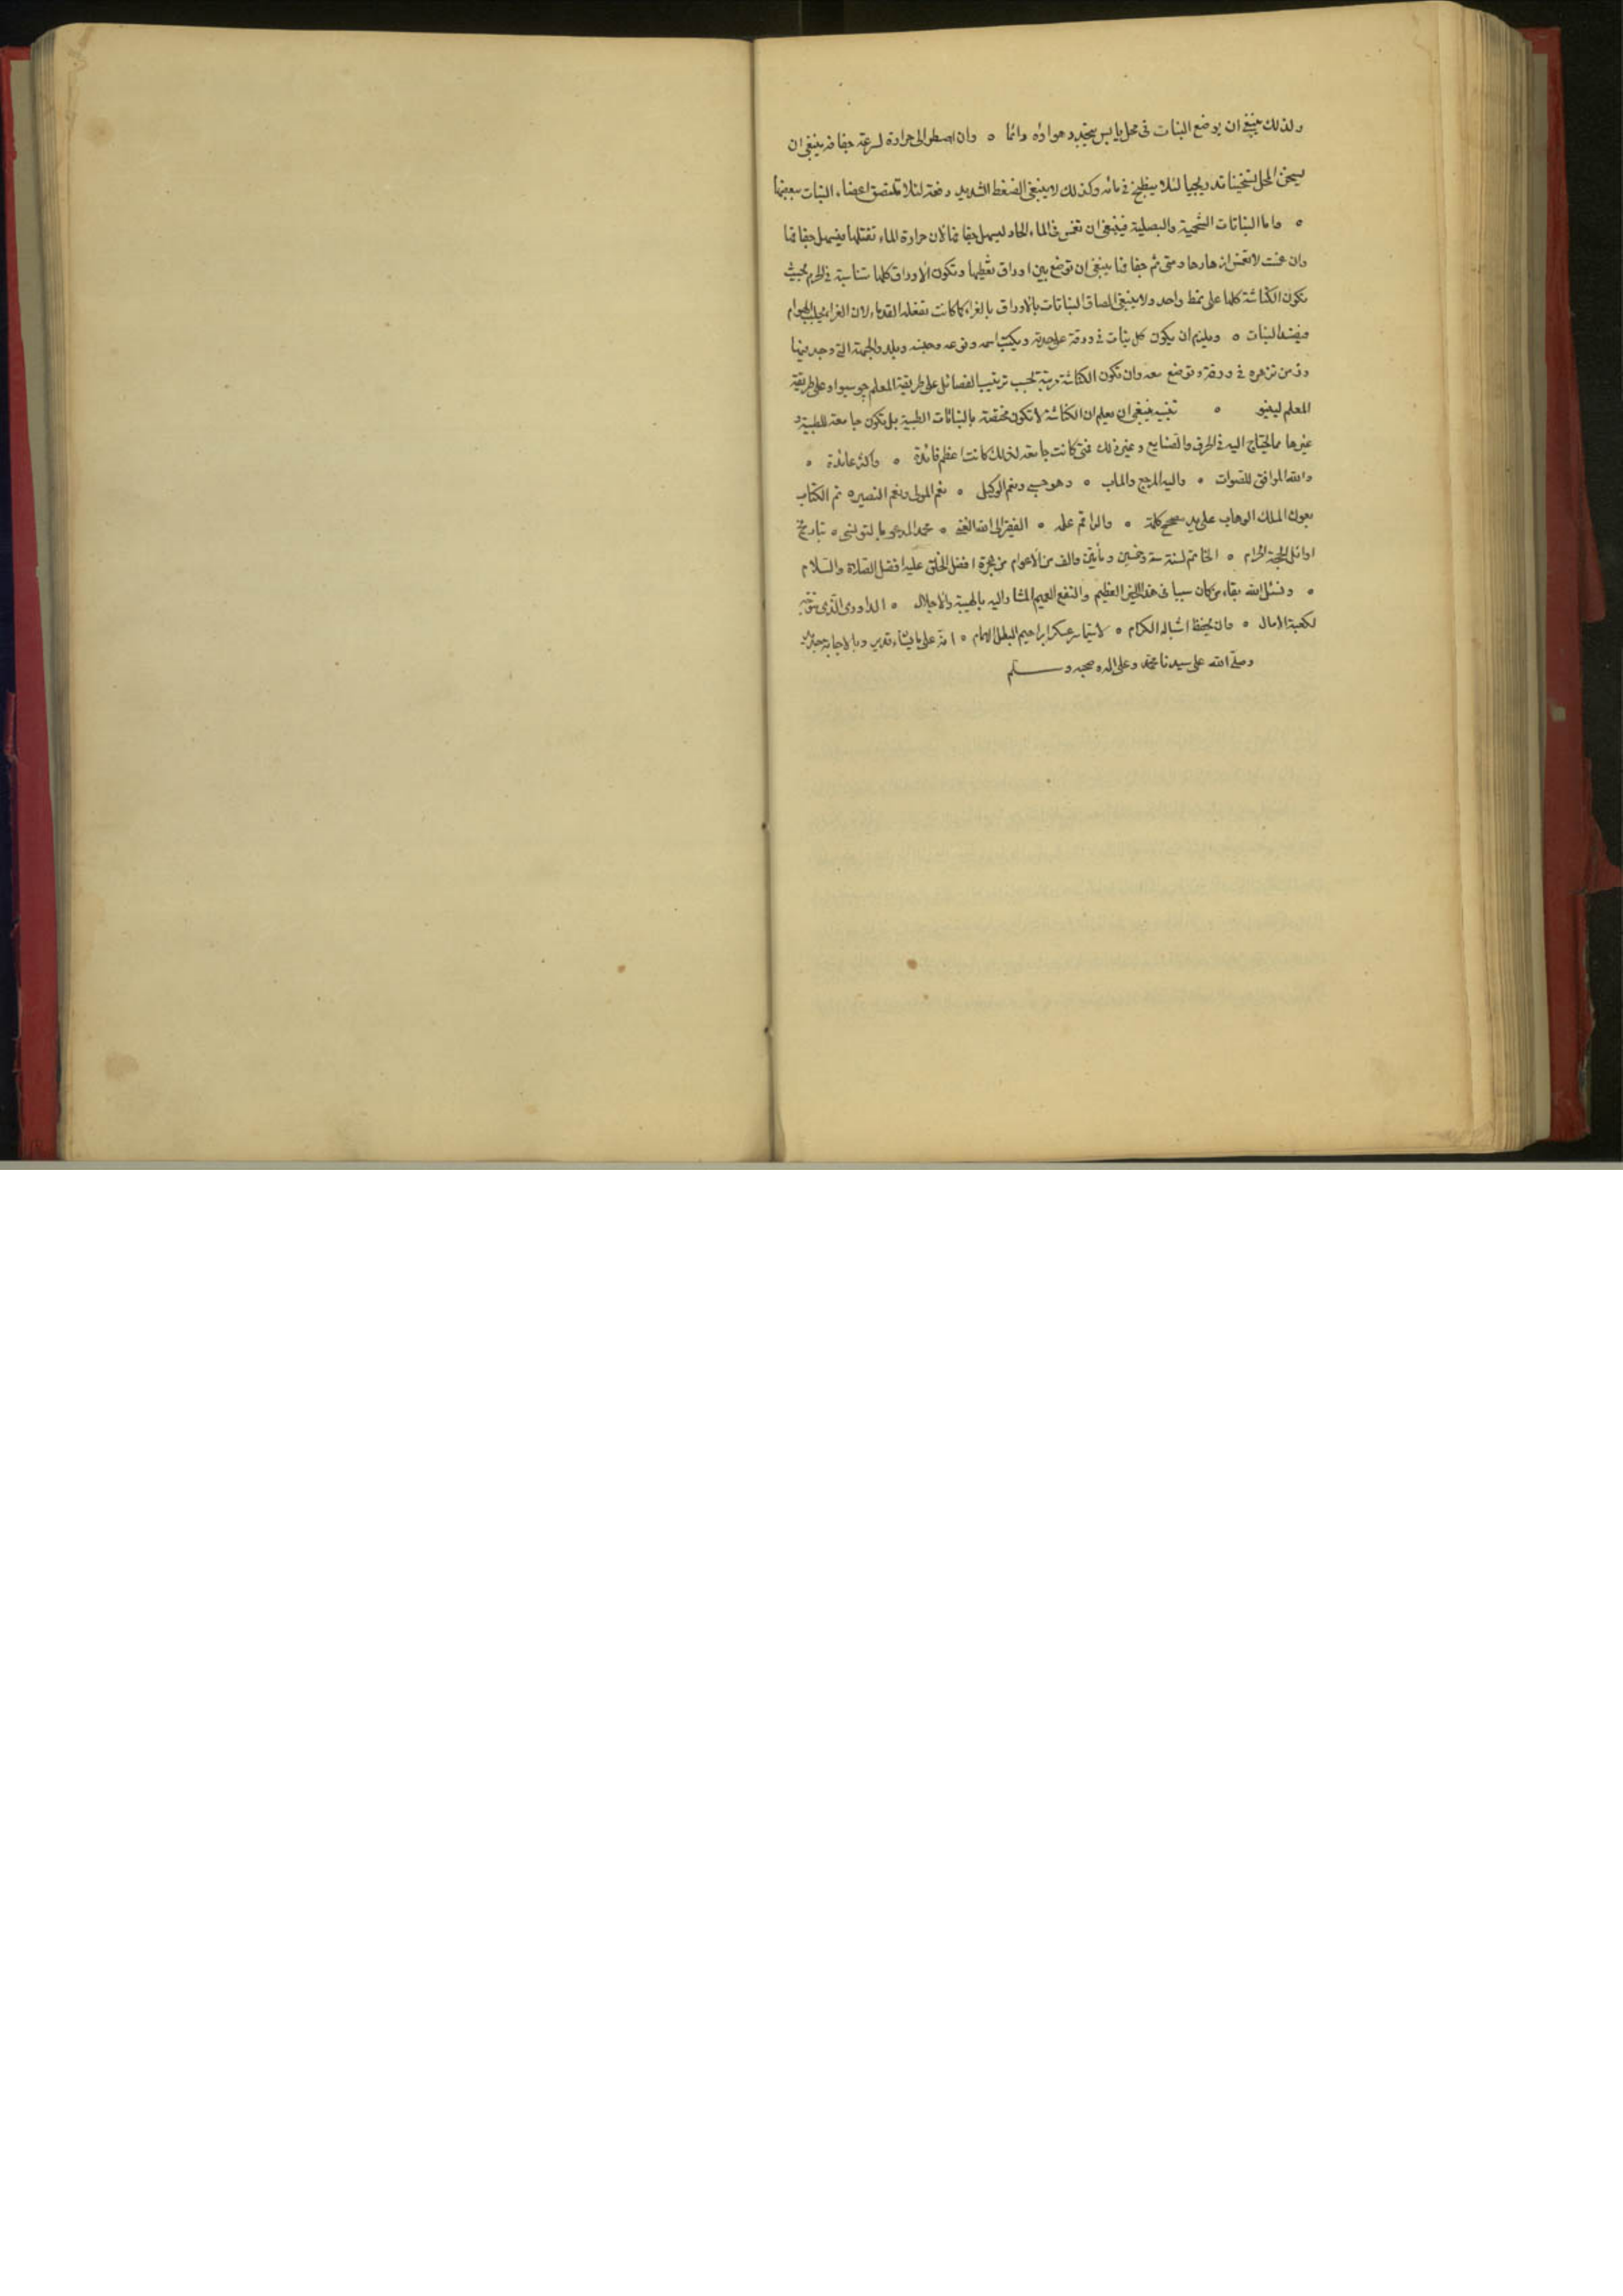 ولذلك ينبغى ان يوضع النبات فى محل يابس يتجدد هواؤه دائما ٥ وان اضطر الى حرارة لسرعة جفافه ينبغى ان
يسخن المحل تسخينا تدريجيا لئلا ينطبخ فى مائه وكذلك لا ينبغى الضغط الشديد دفعة لئلا تلتصق اعضاء النبات ببعضها
٥ واما النباتات الشحمية والبصلية فينبغى ان تغمس فى الماء الحار ليسهل جفافها لان حرارة الماء تقتلها فيسهل جفافها
وان غمست لا تغمس ازهارها ومتى تم جفافها ينبغى ان توضع بين اوراق تغطيها وتكون الاوراق كلها متناسبة فى الجرم بحيث
تكون الكناشة كلها على نمط واحد ولا ينبغى الصاق النباتات بالاوراق بالغراء كما كانت تفعله القدماء لان الغراء يجلب الهوام
فيفسد النبات ٥ ويلزم ان يكون كل نبات فى ورقة على حدته ويكتب اسمه ونوعه وجنسه وبلده والجهة التى وجد فيها
وزمن تزهره فى ورقة وتوضع معه وان تكون الكناشة مرتبة بحسب ترتيب الفصائل على طريقة المعلم جوسيوا وعلى طريقة
المعلم لينيو ٥ تنبيه ينبغى ان يعلم ان الكناشة لا تكون مختصة بالنباتات الطبية بل تكون جامعة للطبية و
غيرها مما يحتاج اليه فى الحرف والصنايع وغير ذلك فمتى كانت جامعة لذلك كانت اعظم فائدة ٥ واكثر عائدة ٥
والله الموافق للصواب ٥ واليه المرجع والماب ٥ وهو حسبى ونعم الوكيل ٥ نعم المولى ونعم النصير ٥ تم الكتاب
بعون الملك الوهاب على يد مصحح كلمه ٥ والراقم عله ٥ الفقير الى الله الغنى ٥ محمد المدعو بالتونسى ٥ بتاريخ
اوائل الحجة الحرام ٥ الخاتم لسنة ستة وخمسين ومأتين والف من الاعوام من هجرة افضل الخلق عليه افضل الصلاة والسلام
٥ ونسئل الله بقاء من كان سببا فى هذا الخير العظيم والنفع العميم المشار اليه بالهيبة والاجلال ٥ الداورى الذى
لكعبة الامال ٥ وان يحفظ اشباله الكرام ٥ لا سيما سر عسكر ابراهيم البطل الهمام ٥ انه على ما يشاء قدير وبالاجابة جدير
وصلى الله على سيدنا محمد وعلى اله وصحبه وسلم